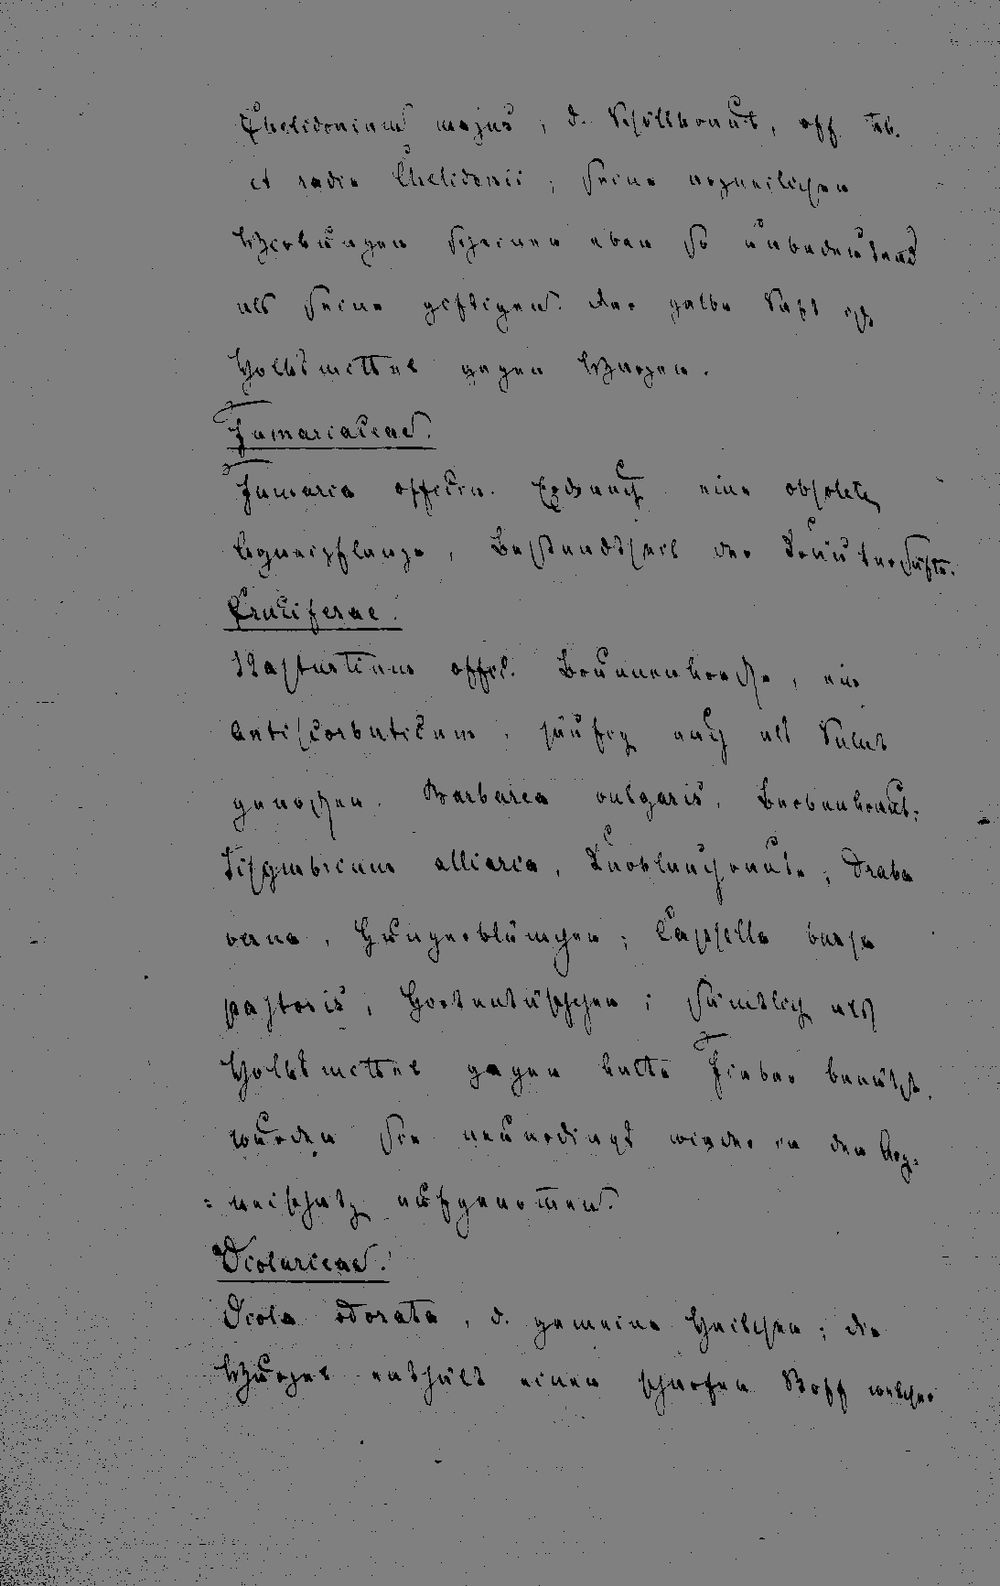 Chelidonium majus, d. Schöllkraut, off. hb.
et radix Chelidonii; seine arzneilichen
Wirkungen scheinen eben so unbedeutend
als seine giftigen. der gelbe Saft ist
Volksmittel gegen Warzen.
Fumariaceae.
Fumaria officin. Erdrauch eine obsolete
Arzneipflanze, Bestandtheil der Kräutersäfte.
Cruciferae.
Nasturtium offic. Brunnenkresse, ein
Antiscorbuticum, häufig auch als Salat
genossen. Barbarea vulgaris, Barbenkraut,
Sisymbrium alliaria, Knoblauchraute; Draba
verna, Hungerblümchen; Capsella bursa
pastoris, Hirtentäschchen; sämtlich als
Volksmittel gegen kalte Fieber benützt,
wurden sie neuerdings wieder in den Arz=
=neischatz aufgenom̅en.
Violarieae.
Viola odorata, d. gemeine Veilchen; die
Wurzel enthält einen scharfen Stoff welcher